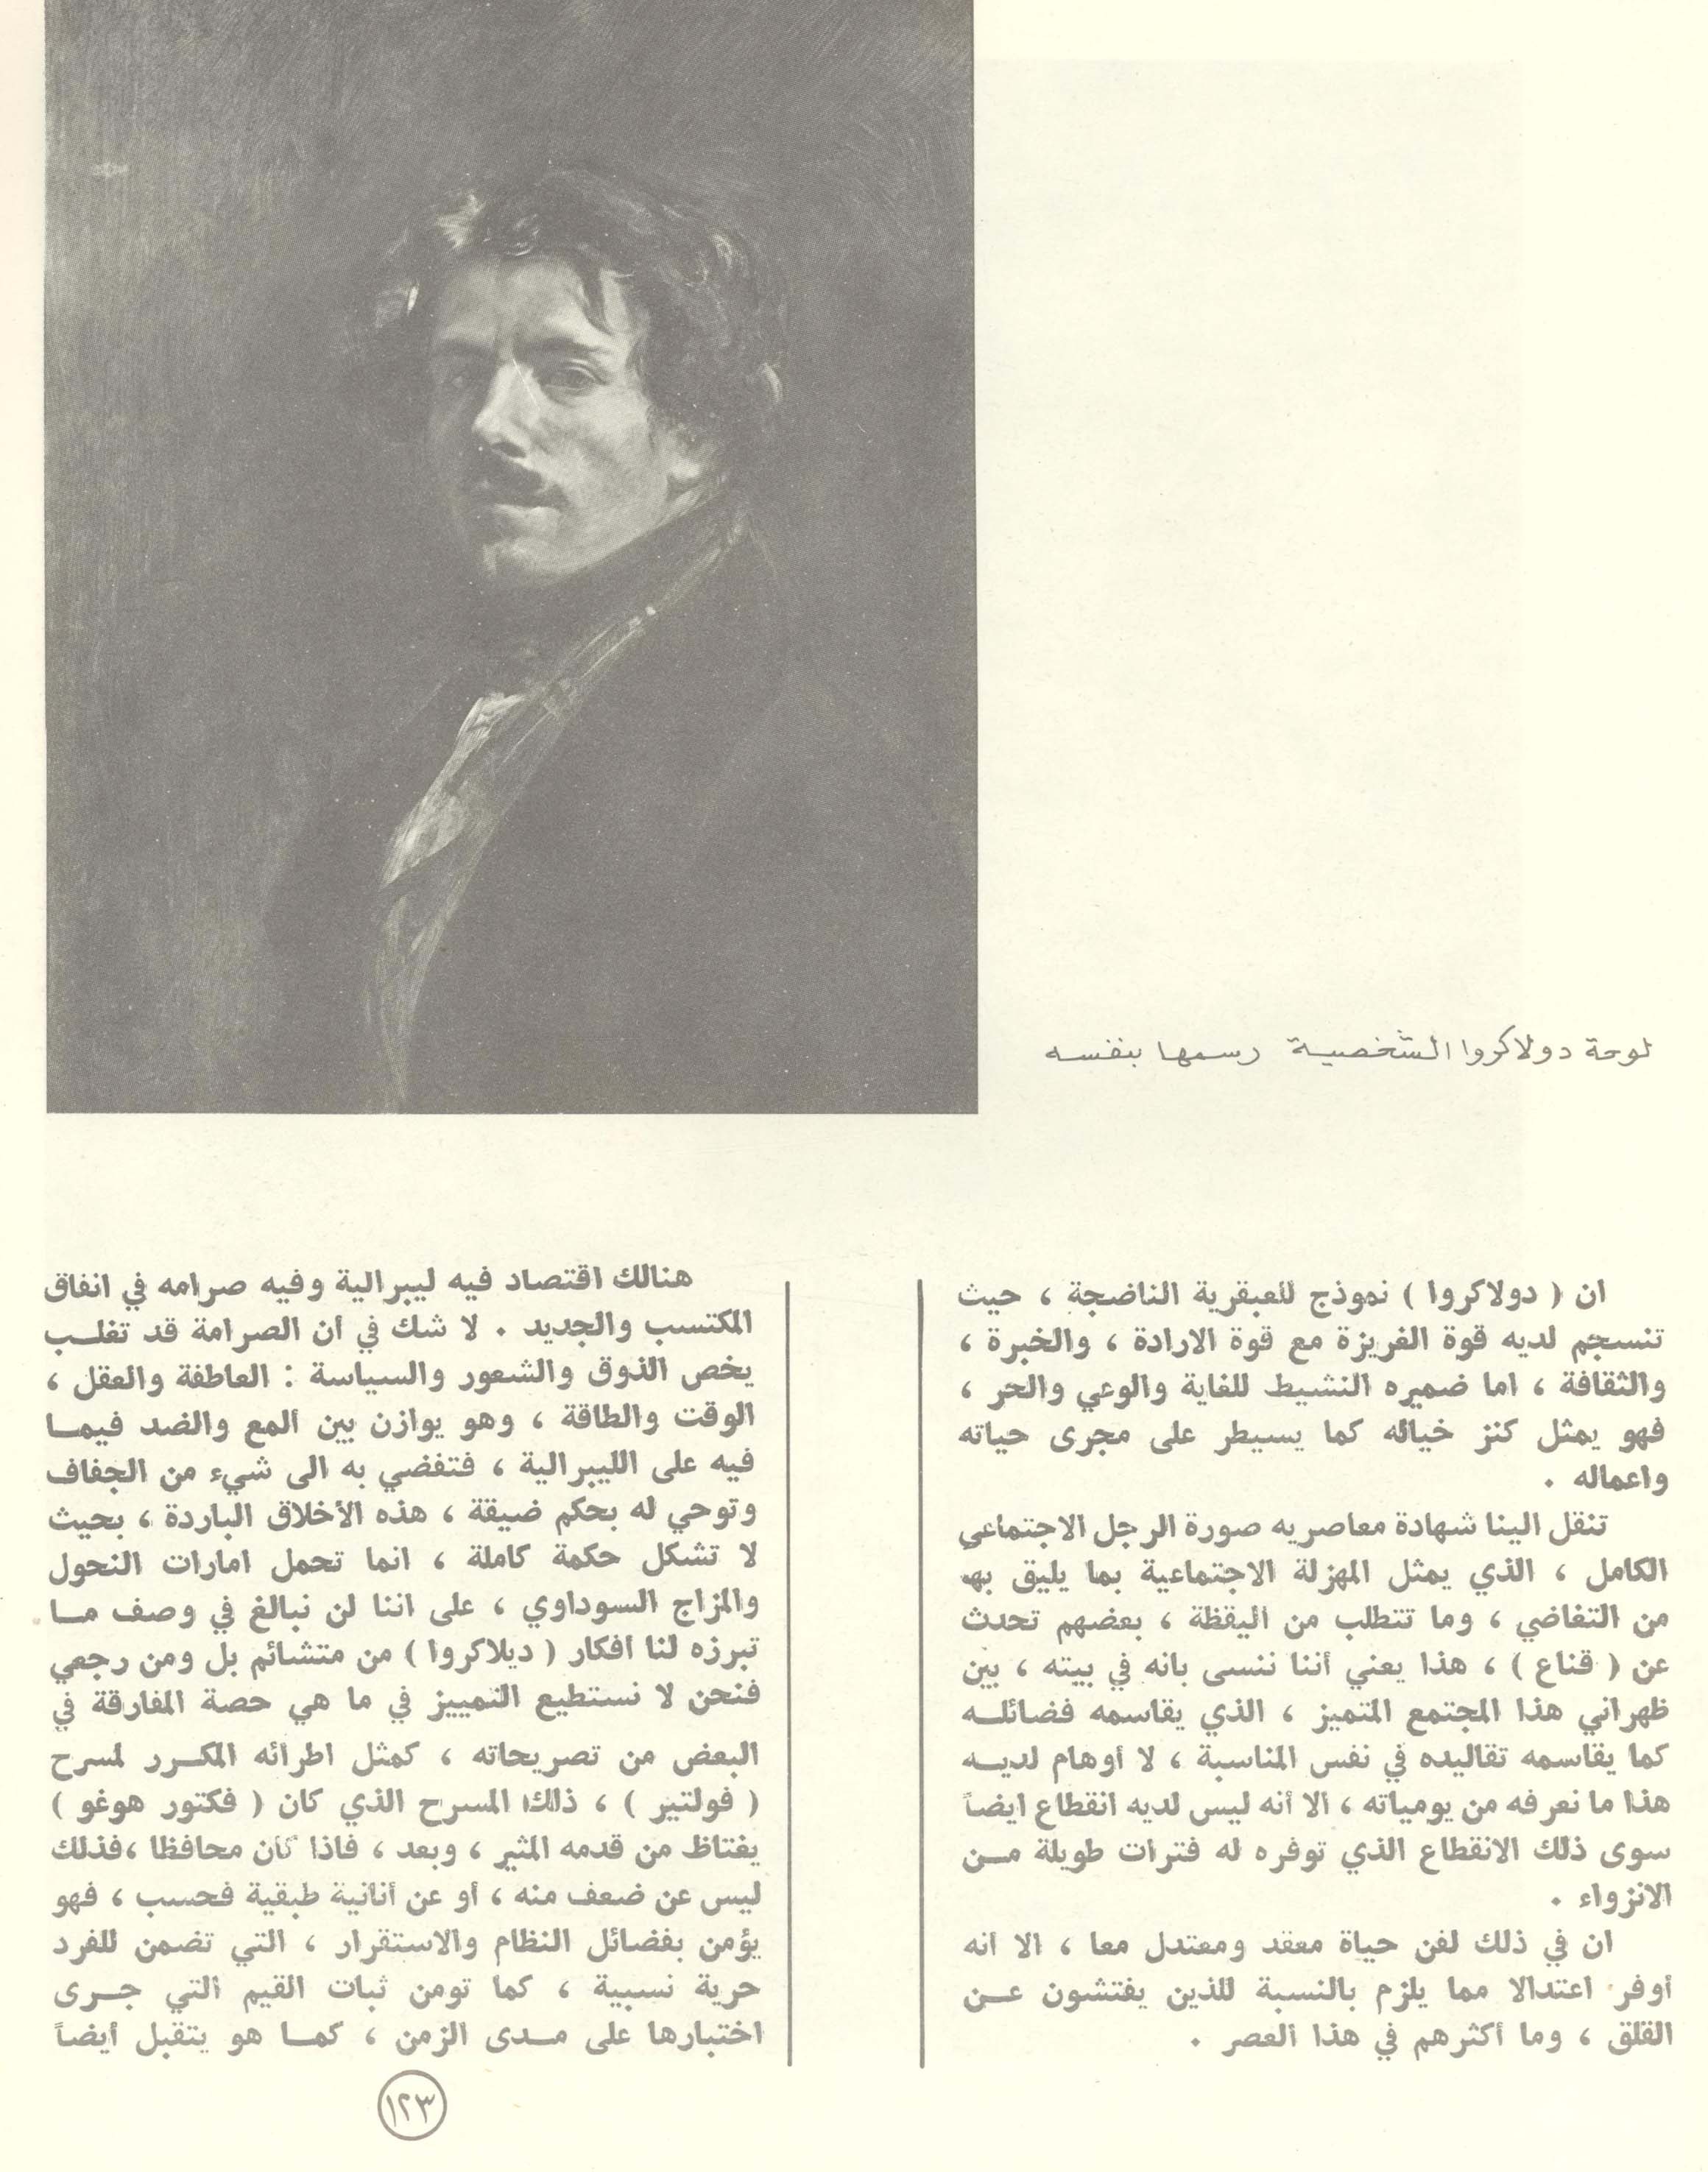 لوحة دولاكروا الشخصية رسمها بنفسه
ان ( دولاكروا ) نموذج للعبقرية الناضجة ، حيث
تنسجم لديه قوة الغريزة مع قوة الارادة ، والخبرة ،
والثقافة ، اما ضميره النشيط للغاية والوعي والحر ،
فهو يمثل كنز خياله كما يسيطر على مجرى حياته
واعماله .
تنقل الينا شهادة معاصريه صورة الرجل الاجتماعي
الكامل ، الذي يمثل المهزلة الاجتماعية بما يليق بها
من التغاضي ، وما تتطلب من اليقظة ، بعضهم تحدث
عن ( قناع ) ، هذا يعني أننا ننسى بانه في بيته ، بين
ظهراني هذا المجتمع المتميز ، الذي يقاسمه فضائلــه
كما يقاسمه تقاليده في نفس المناسبة ، لا أوهام لديــه
هذا ما نعرفه من يومياته ، الا أنه ليس لديه انقطاع ايضاً
سوى ذلك الانقطاع الذي توفره له فترات طويلة مــن
الانزواء .
ان في ذلك لفن حياة معقد ومعتدل معا ، الا انه
أوفر اعتدالا مما يلزم بالنسبة للذين يفتشون عــن
القلق ، وما أكثرهم في هذا العصر .
هنالك اقتصاد فيه ليبرالية وفيه صرامه في انفاق
المكتسب والجديد . لا شك في أن الصرامة قد تغلــب
يخص الذوق والشعور والسياسة : العاطفة والعقل ،
الوقت والطاقة ، وهو يوازن بين المع والضد فيمــا
فيه على الليبرالية ، فتفضي به الى شيء من الجفاف
وتوحي له بحكم ضيقة ، هذه الأخلاق الباردة ، بحيث
لا تشكل حكمة كاملة ، انما تحمل امارات النحول
والمزاج السوداوي ، على اننا لن نبالغ في وصف مــا
تبرزه لنا أفكار ( ديلاكروا ) من متشائم بل ومن رجعي
فنحن لا نستطيع التمييز في ما هي حصة المفارقة في
البعض من تصريحاته ، كمثل اطرائه المكــرر لمسرح
( فولتير ) ، ذلك المسرح الذي كان ( فكتور هوغو )
يغتاظ من قدمه المثير ، وبعد ، فاذا كان محافظا ،فذلك
ليس عن ضعف منه ، أو عن أنانية طبقية فحسب ، فهو
يؤمن بفضائل النظام والاستقرار ، التي تضمن للفرد
حرية نسبية ، كما تومن ثبات القيم التي جــرى
اختبارها على مــدى الزمن ، كمــا هو يتقبل أيضاً
١٢٣